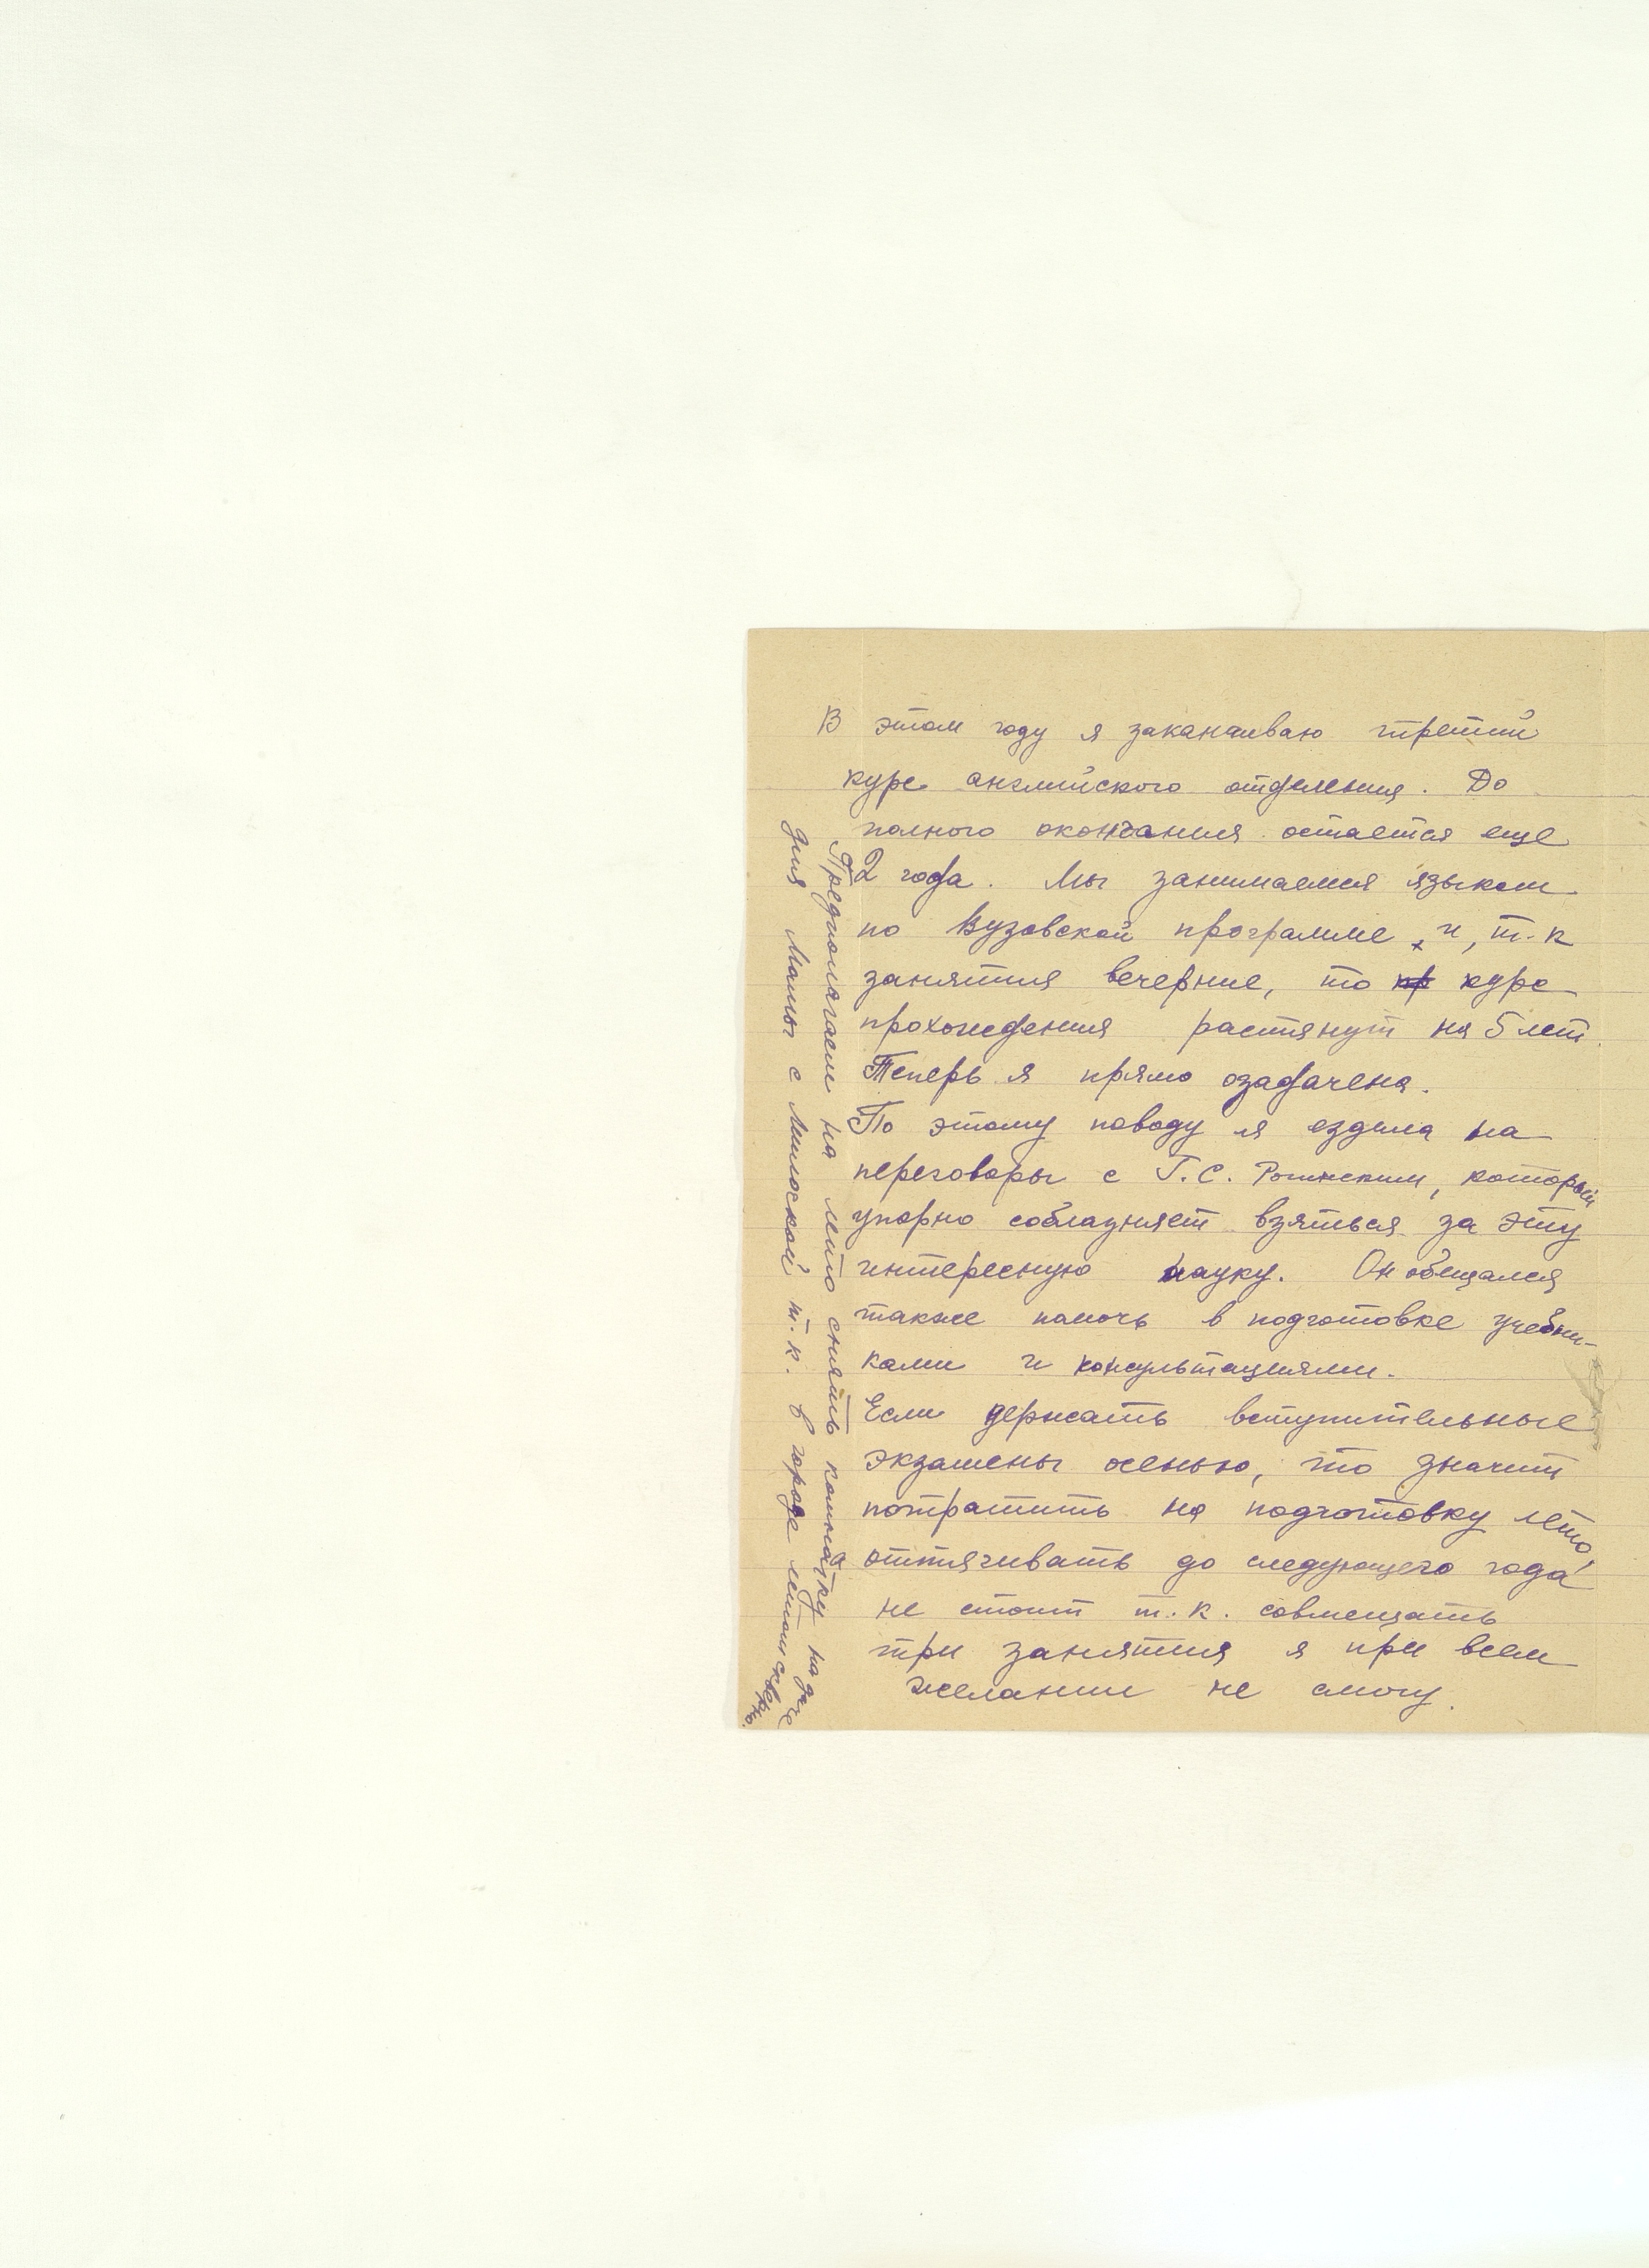 В этом году я заканчиваю третий
курс английского отделения. До
полного окончания остается еще
2 года. Мы занимаемся языком
по Вузовской программе, и, т.к
занятия вечерние, то курс
прохождения растянут на 5 лет
Теперь я прямо озадачена.
По этому поводу я ездила на
переговоры с Г.С. Рогинским, который
упорно соблазняет взяться за эту
интересную науку. Он обещался
также помочь в подготовке учебни-
ками и консультациями.
Если держать вступительные
экзамены осенью, то значит
потратить на подготовку лето,
а оттягивать до следующего года
не стоит т.к. совмещать
три занятия я при всем
желании не смогу.
Предполагаем на лето снять комнатку на даче
для Мамы с Милоской т.к. в городе летом скверно.